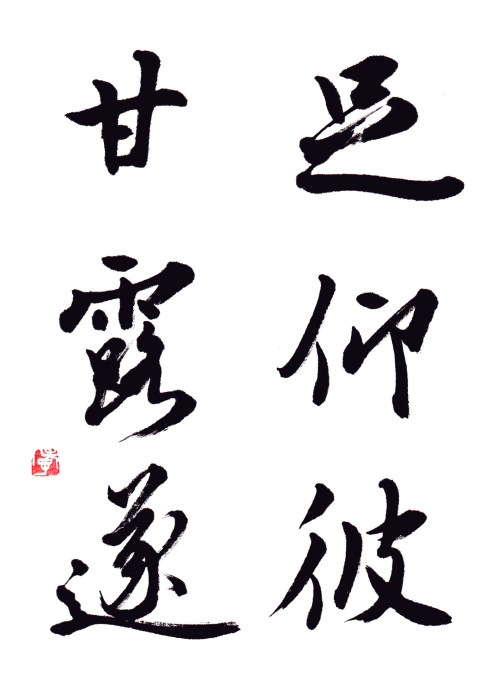 足仰彼
甘露遂